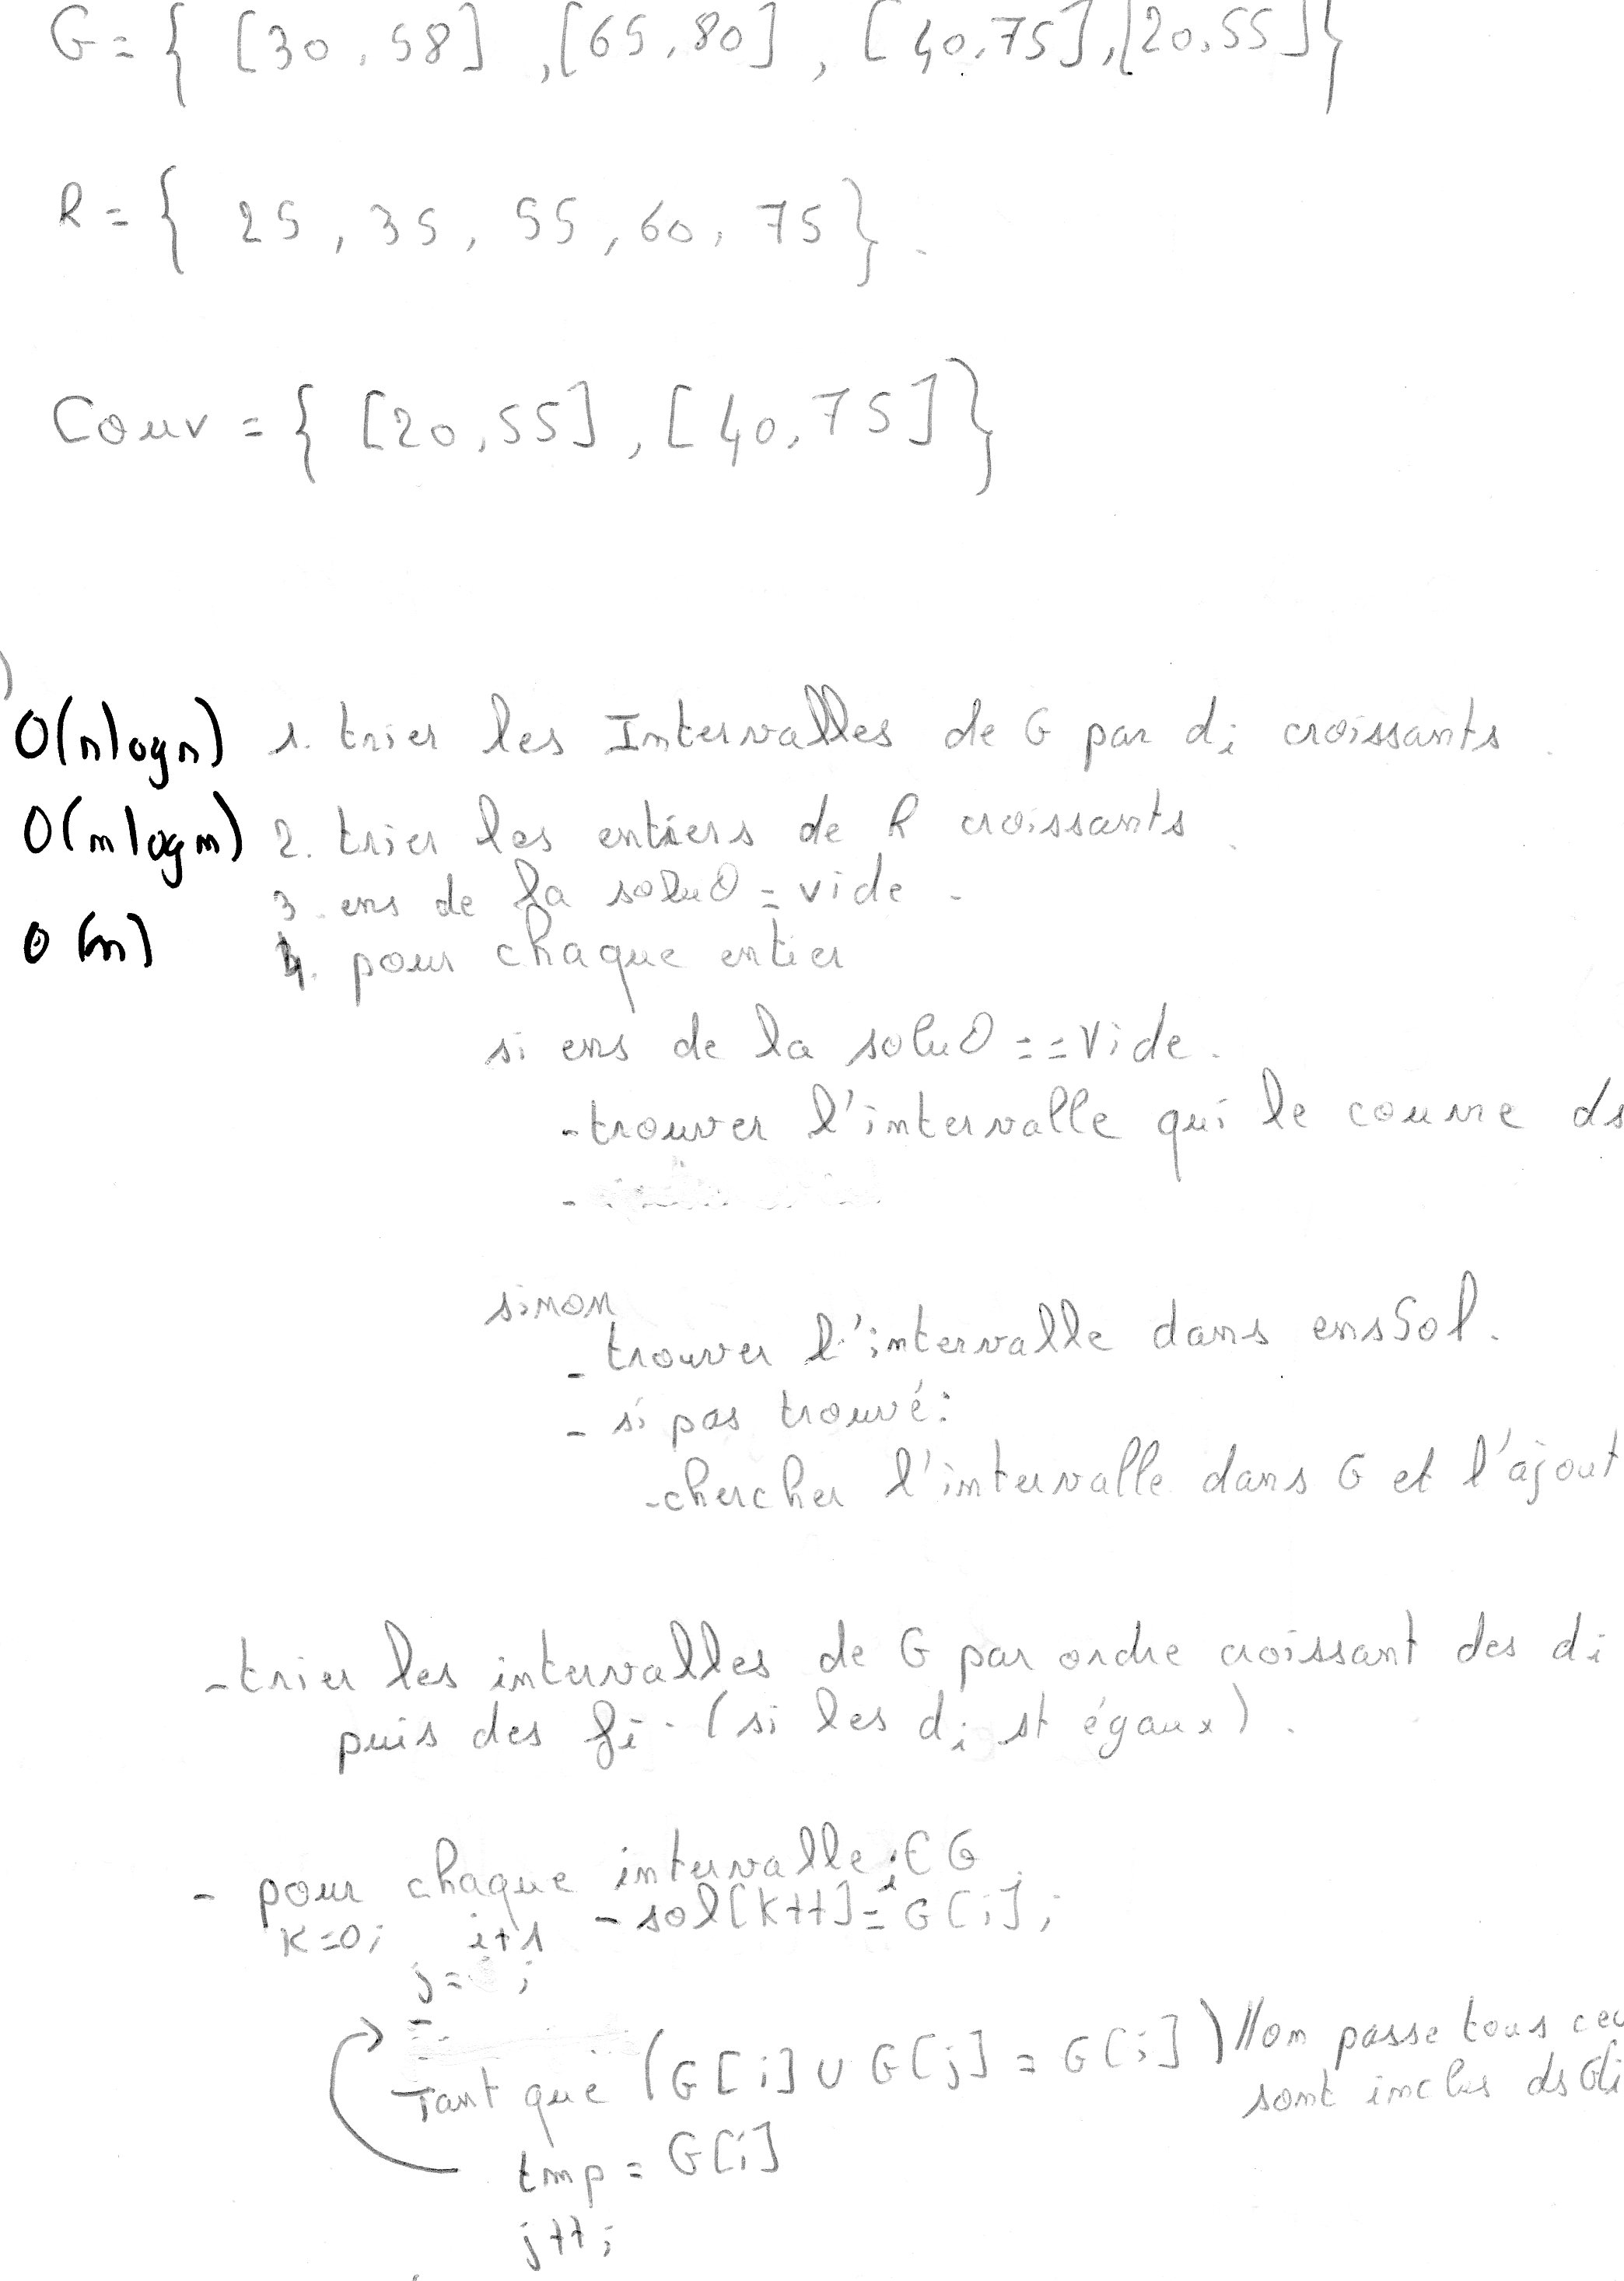 G = { [30, 58] , [65, 80] , [40, 75] , [20, 55] }
R = { 25 , 35 , 55 , 60 , 75 } .
Couv = { [20, 55] , [40, 75] }
)
O(n log n) 1. trier les Intervalles de G par di croissants .
O(m log m) 2. trier les entiers de R croissants .
3. ens de la soluΘ = vide .
O(m) 4. pour chaque entier
si ens de la soluΘ == Vide .
- trouver l'intervalle qui le couvre ds
-
sinon
- trouver l'intervalle dans ensSol .
- si pas trouvé :
- chercher l'intervalle dans G et l'ajout
- trier les intervalles de G par ordre croissant des di
puis des fi . (si les di st égaux) .
- pour chaque intervalle i ∈ G
K=0; - sol[k++] = G[i] ;
j = i+1 ;
-
Tant que (G[i] ∪ G[j] = G[i]) // on passe tous ceu
sont inclus ds G[i
tmp = G[i]
j++ ;